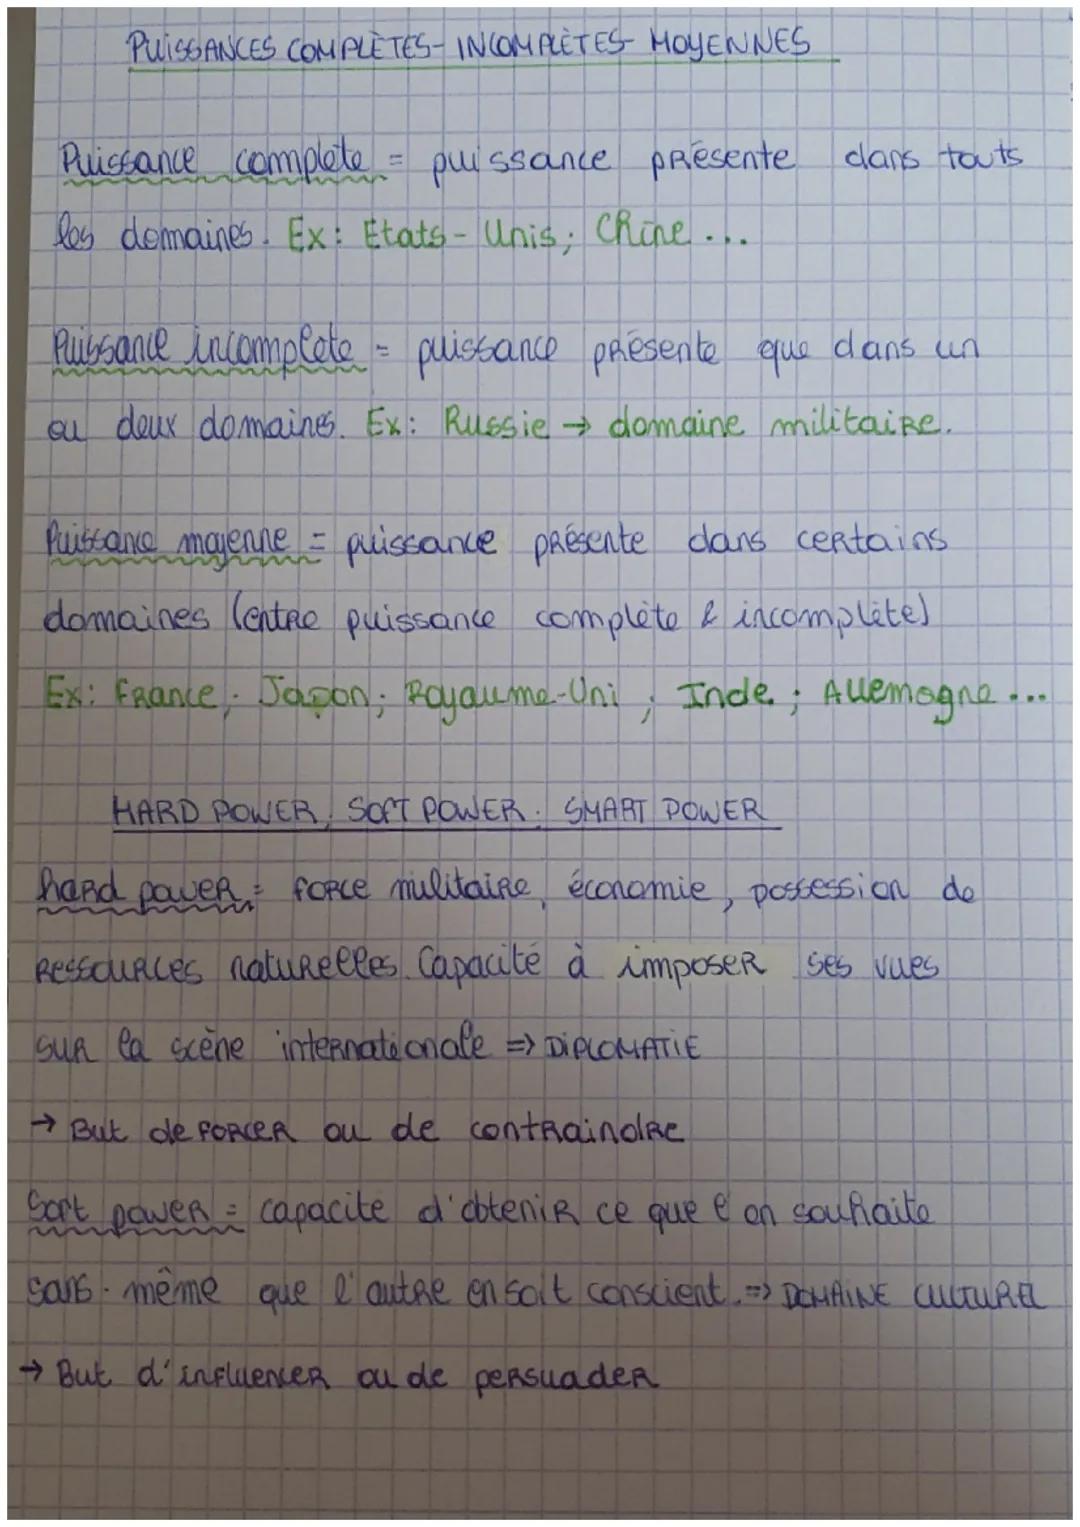 PUISSANCES COMPLÈTES - INCOMPLÈTES - MOYENNES
Puissance complète = puissance présente dans touts
les domaines. Ex: Etats-Unis; Chine...
Puissance incomplète = puissance présente que dans un
ou deux domaines. Ex: Russie → domaine militaire.
Puissance moyenne = puissance présente dans certains
domaines (entre puissance complète & incomplète)
Ex: France; Japon; Royaume-Uni; Inde; Allemagne...
HARD POWER, SOFT POWER. SMART POWER
hard power = force militaire, économie, possession de
ressources naturelles. Capacité à imposer ses vues
sur la scène internationale => DIPLOMATIE
→ But de forcer ou de contraindre
Soft power = capacité d'obtenir ce que l'on souhaite
sans même que l'autre en soit conscient. => DOMAINE CULTUREL
→ But d'influencer ou de persuader